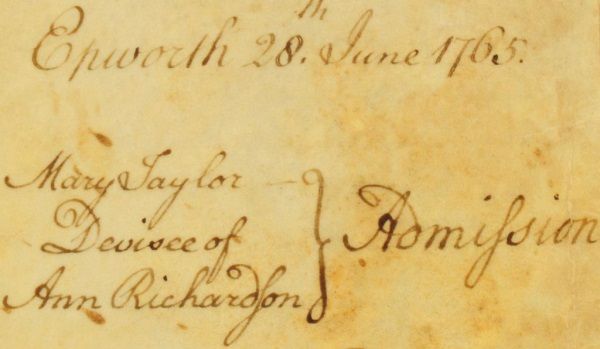 Epworth 28.th June 1765.
Mary Taylor —
Devisee of
Ann Richardson
} Admiſsion